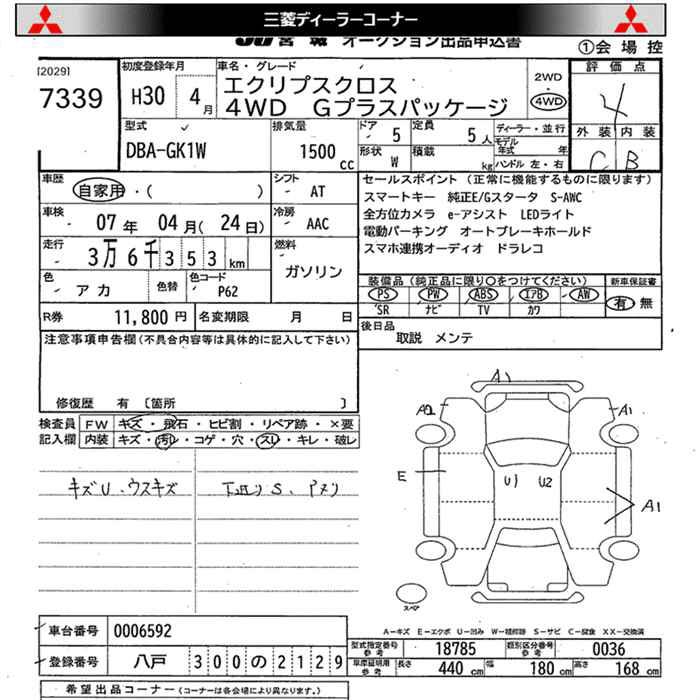 三菱ディーラーコーナー
JU 宮城 オークション出品申込書
①会場控
[2029]
7339
初度登録年月
H30 4月
車名・グレード
エクリプスクロス
4WD Gプラスパッケージ
2WD
・
4WD
評価点
4
外装 内装
C B
型式
DBA-GK1W
排気量
1500 cc
ドア 5
定員 5人
形状 W
積載 kg
ディーラー・並行
モデル年式 年
ハンドル 左・右
車歴 自家用・( )
シフト AT
車検 07年 04月(24日)
冷房 AAC
走行 3万6千353km
燃料 ガソリン
色 アカ
色替
色コード P62
R券 11,800円
名変期限 月 日
セールスポイント (正常に機能するものに限ります)
スマートキー 純正E/Gスタータ S-AWC
全方位カメラ e-アシスト LEDライト
電動パーキング オートブレーキホールド
スマホ連携オーディオ ドラレコ
装備品 (純正品に限り○をつけてください)
新車保証書
PS PW ABS エアB AW
SR ナビ TV カワ
有 無
後日品
取説 メンテ
注意事項申告欄(不具合内容等は具体的に記入して下さい)
修復歴 有 〔箇所 〕
検査員記入欄
FW キズ・飛石・ヒビ割・リペア跡・×要
内装 キズ・汚レ・コゲ・穴・スレ・キレ・破レ
キズU、ウスキズ
下廻りS、アメリ
A1
A2
A1
E
U1 U2
A1
スペア
A-キズ E-エクボ U-凹み W-補修跡 S-サビ C-腐食 XX-交換済
車台番号 0006592
登録番号 八戸 300の2129
型式指定番号 参考 18785
類別区分番号 参考 0036
車庫証明用 参考
長さ 440 cm
幅 180 cm
高さ 168 cm
希望出品コーナー (コーナーは各会場により異なります。)